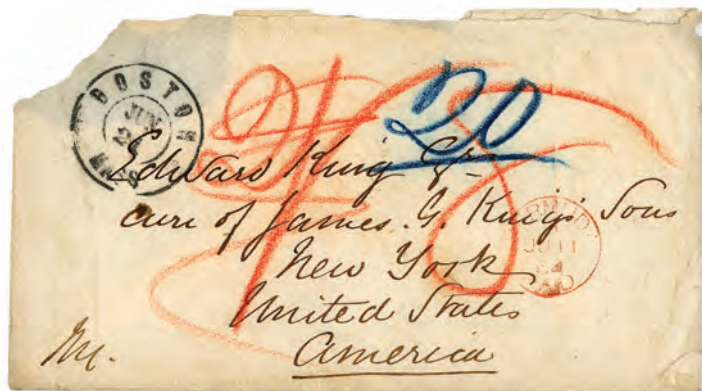 BOSTON
JUN
MASS
20
Edward King Esqr
care of James. G. King's Sons
New York
United States
America
PAID